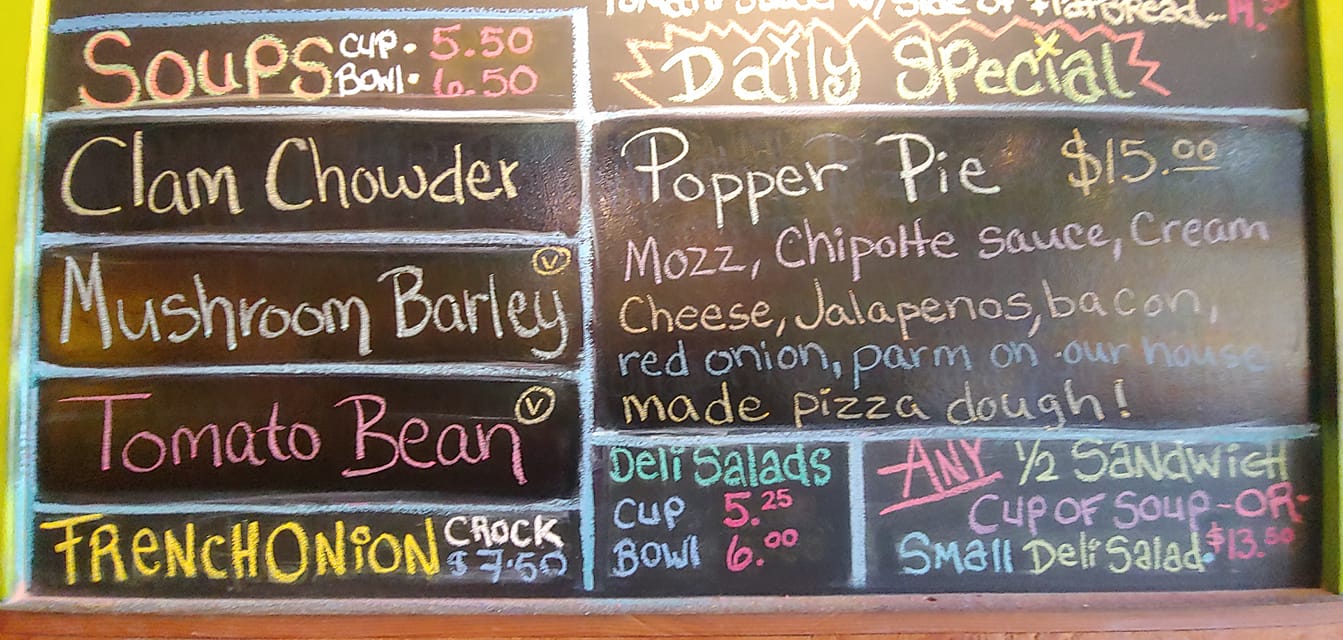 Soups CUP. 5.50
BOWl. 6.50
Clam Chowder
Mushroom Barley V
Tomato Bean V
FRENCH ONiON CROCK
$7.50
Tomato sauce w/ side of flatbread... 14.50
Daily Special
Popper Pie $15.00
Mozz, Chipotle sauce, Cream
Cheese, Jalapenos, bacon,
red onion, parm on our house
made pizza dough!
Deli Salads
CUP 5.25
BOWl 6.00
ANY 1/2 SANDWiCH
CUP OF SOUP -OR-
SMAll Deli Salad. $13.50